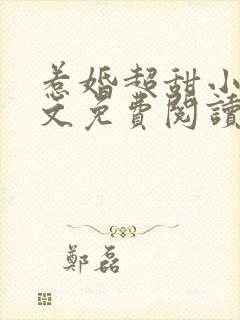 惹婚超甜小
文免費閱讀
鄭磊